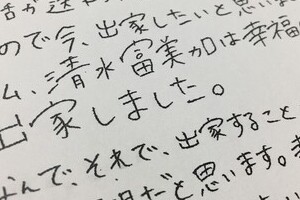 ので今、出家したいと思いま
ム、清水富美加は幸福
出家しました。
なんで、それで、出家すること
だと思います。